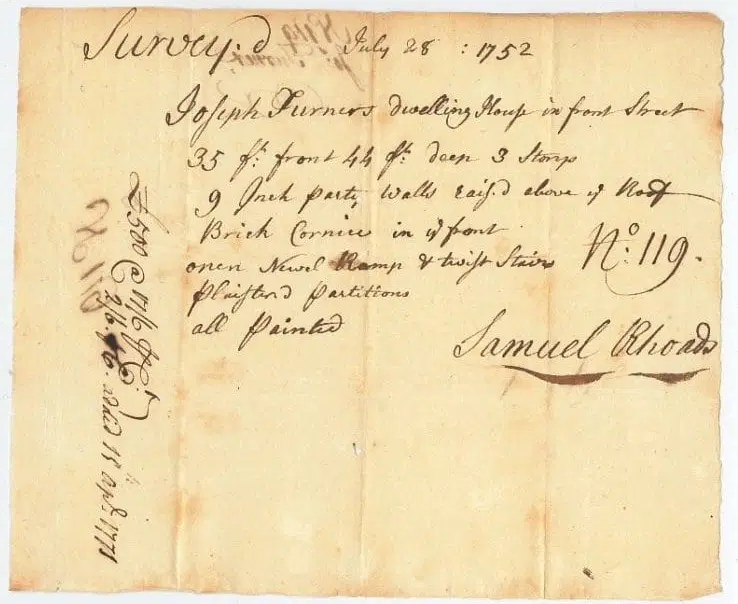 Survey.'d July 28 : 1752
Joseph Turners dwelling House in front Street
35 ft. front 44 ft. deep 3 Storys
9 Inch party Walls rais'd above ye Roof
Brick Cornice in ye front
open Newel Ramp & twist Stairs
Plaister'd Partitions
all Painted
No. 119.
Samuel Rhoads
£500 @ 17/6 PCt
2/6 added 15 apl. 1771